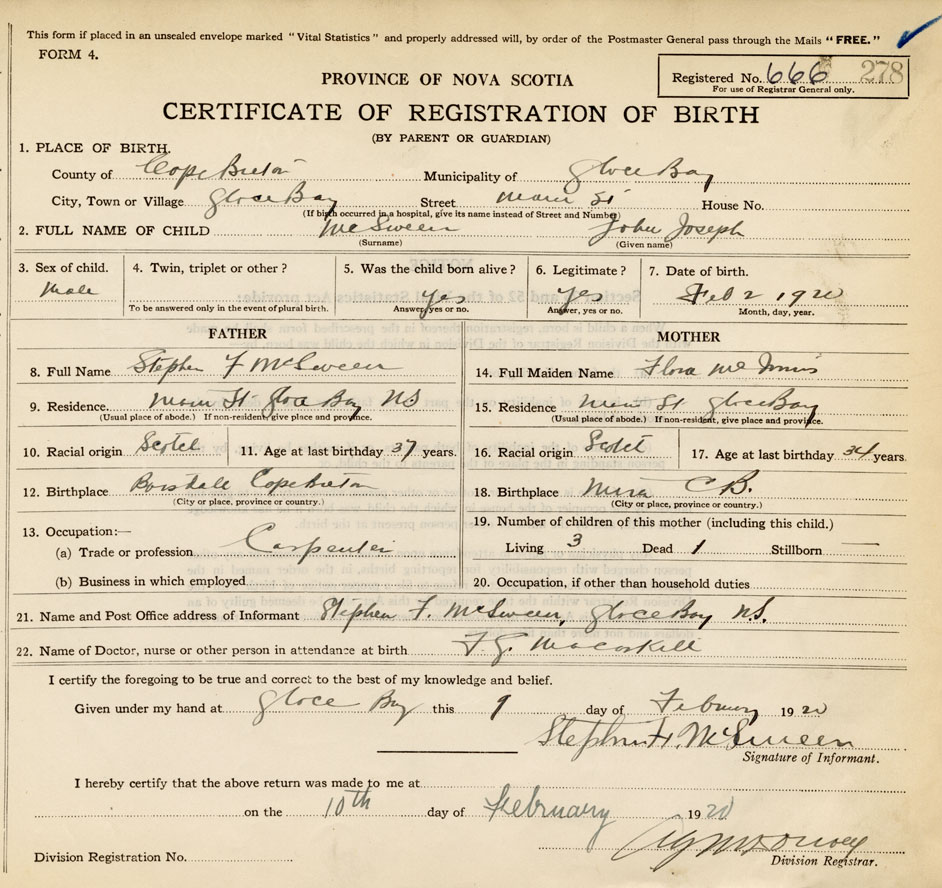 This form if placed in an unsealed envelope marked "Vital Statistics" and properly addressed will, by order of the Postmaster General pass through the Mails "FREE."
FORM 4.
PROVINCE OF NOVA SCOTIA
Registered No. 666 278
For use of Registrar General only.
CERTIFICATE OF REGISTRATION OF BIRTH
(BY PARENT OR GUARDIAN)
1. PLACE OF BIRTH.
County of Cape Breton Municipality of Glace Bay
City, Town or Village Glace Bay Street Main St House No.
(If birth occurred in a hospital, give its name instead of Street and Number)
2. FULL NAME OF CHILD McSween John Joseph
(Surname) (Given name)
3. Sex of child. 4. Twin, triplet or other? 5. Was the child born alive? 6. Legitimate? 7. Date of birth.
Male yes yes Feb 2 1920
To be answered only in the event of plural birth. Answer, yes or no. Answer, yes or no. Month, day, year.
FATHER MOTHER
8. Full Name Stephen F McSween 14. Full Maiden Name Flora McInnis
9. Residence. Main St Glace Bay NS 15. Residence Main St Glace Bay
(Usual place of abode.) If non-resident, give place and province. (Usual place of abode.) If non-resident, give place and province.
10. Racial origin Scotch 11. Age at last birthday 37 years. 16. Racial origin Scotch 17. Age at last birthday 34 years.
12. Birthplace Boisdale Cape Breton 18. Birthplace Mira C B.
(City or place, province or country.) (City or place, province or country.)
13. Occupation:— 19. Number of children of this mother (including this child.)
(a) Trade or profession Carpenter Living 3 Dead 1 Stillborn —
(b) Business in which employed 20. Occupation, if other than household duties
21. Name and Post Office address of Informant Stephen F. McSween, Glace Bay N.S.
22. Name of Doctor, nurse or other person in attendance at birth F. G. Macaskill
I certify the foregoing to be true and correct to the best of my knowledge and belief.
Given under my hand at Glace Bay this 9 day of February 1920
Stephen F. McSween
Signature of Informant.
I hereby certify that the above return was made to me at
on the 10th day of February 1920
Division Registration No.
Division Registrar.